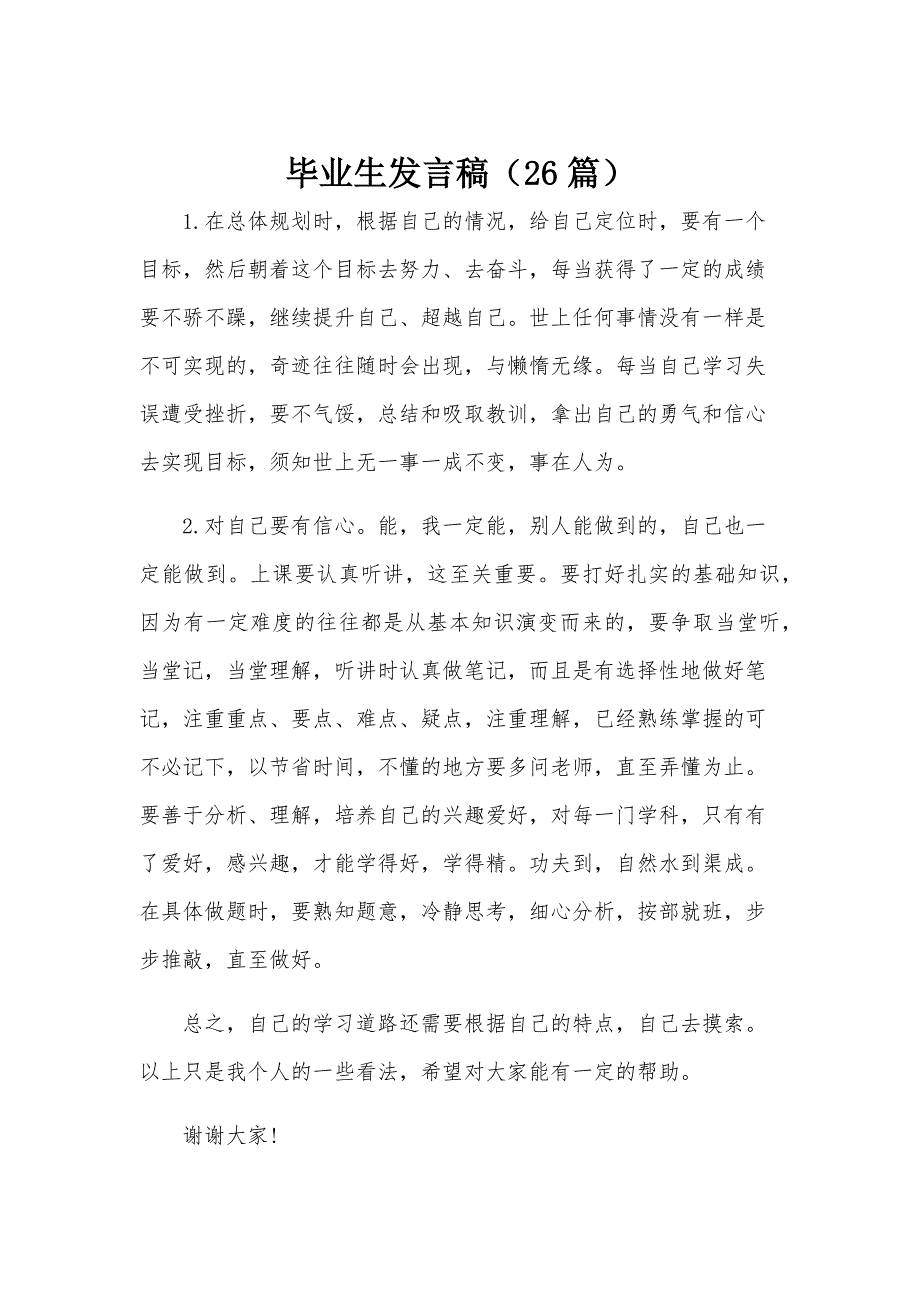 毕业生发言稿（26 篇）
1.在总体规划时，根据自己的情况，给自己定位时，要有一个
目标，然后朝着这个目标去努力、去奋斗，每当获得了一定的成绩
要不骄不躁，继续提升自己、超越自己。世上任何事情没有一样是
不可实现的，奇迹往往随时会出现，与懒惰无缘。每当自己学习失
误遭受挫折，要不气馁，总结和吸取教训，拿出自己的勇气和信心
去实现目标，须知世上无一事一成不变，事在人为。
2.对自己要有信心。能，我一定能，别人能做到的，自己也一
定能做到。上课要认真听讲，这至关重要。要打好扎实的基础知识，
因为有一定难度的往往都是从基本知识演变而来的，要争取当堂听，
当堂记，当堂理解，听讲时认真做笔记，而且是有选择性地做好笔
记，注重重点、要点、难点、疑点，注重理解，已经熟练掌握的可
不必记下，以节省时间，不懂的地方要多问老师，直至弄懂为止。
要善于分析、理解，培养自己的兴趣爱好，对每一门学科，只有有
了爱好，感兴趣，才能学得好，学得精。功夫到，自然水到渠成。
在具体做题时，要熟知题意，冷静思考，细心分析，按部就班，步
步推敲，直至做好。
总之，自己的学习道路还需要根据自己的特点，自己去摸索。
以上只是我个人的一些看法，希望对大家能有一定的帮助。
谢谢大家!